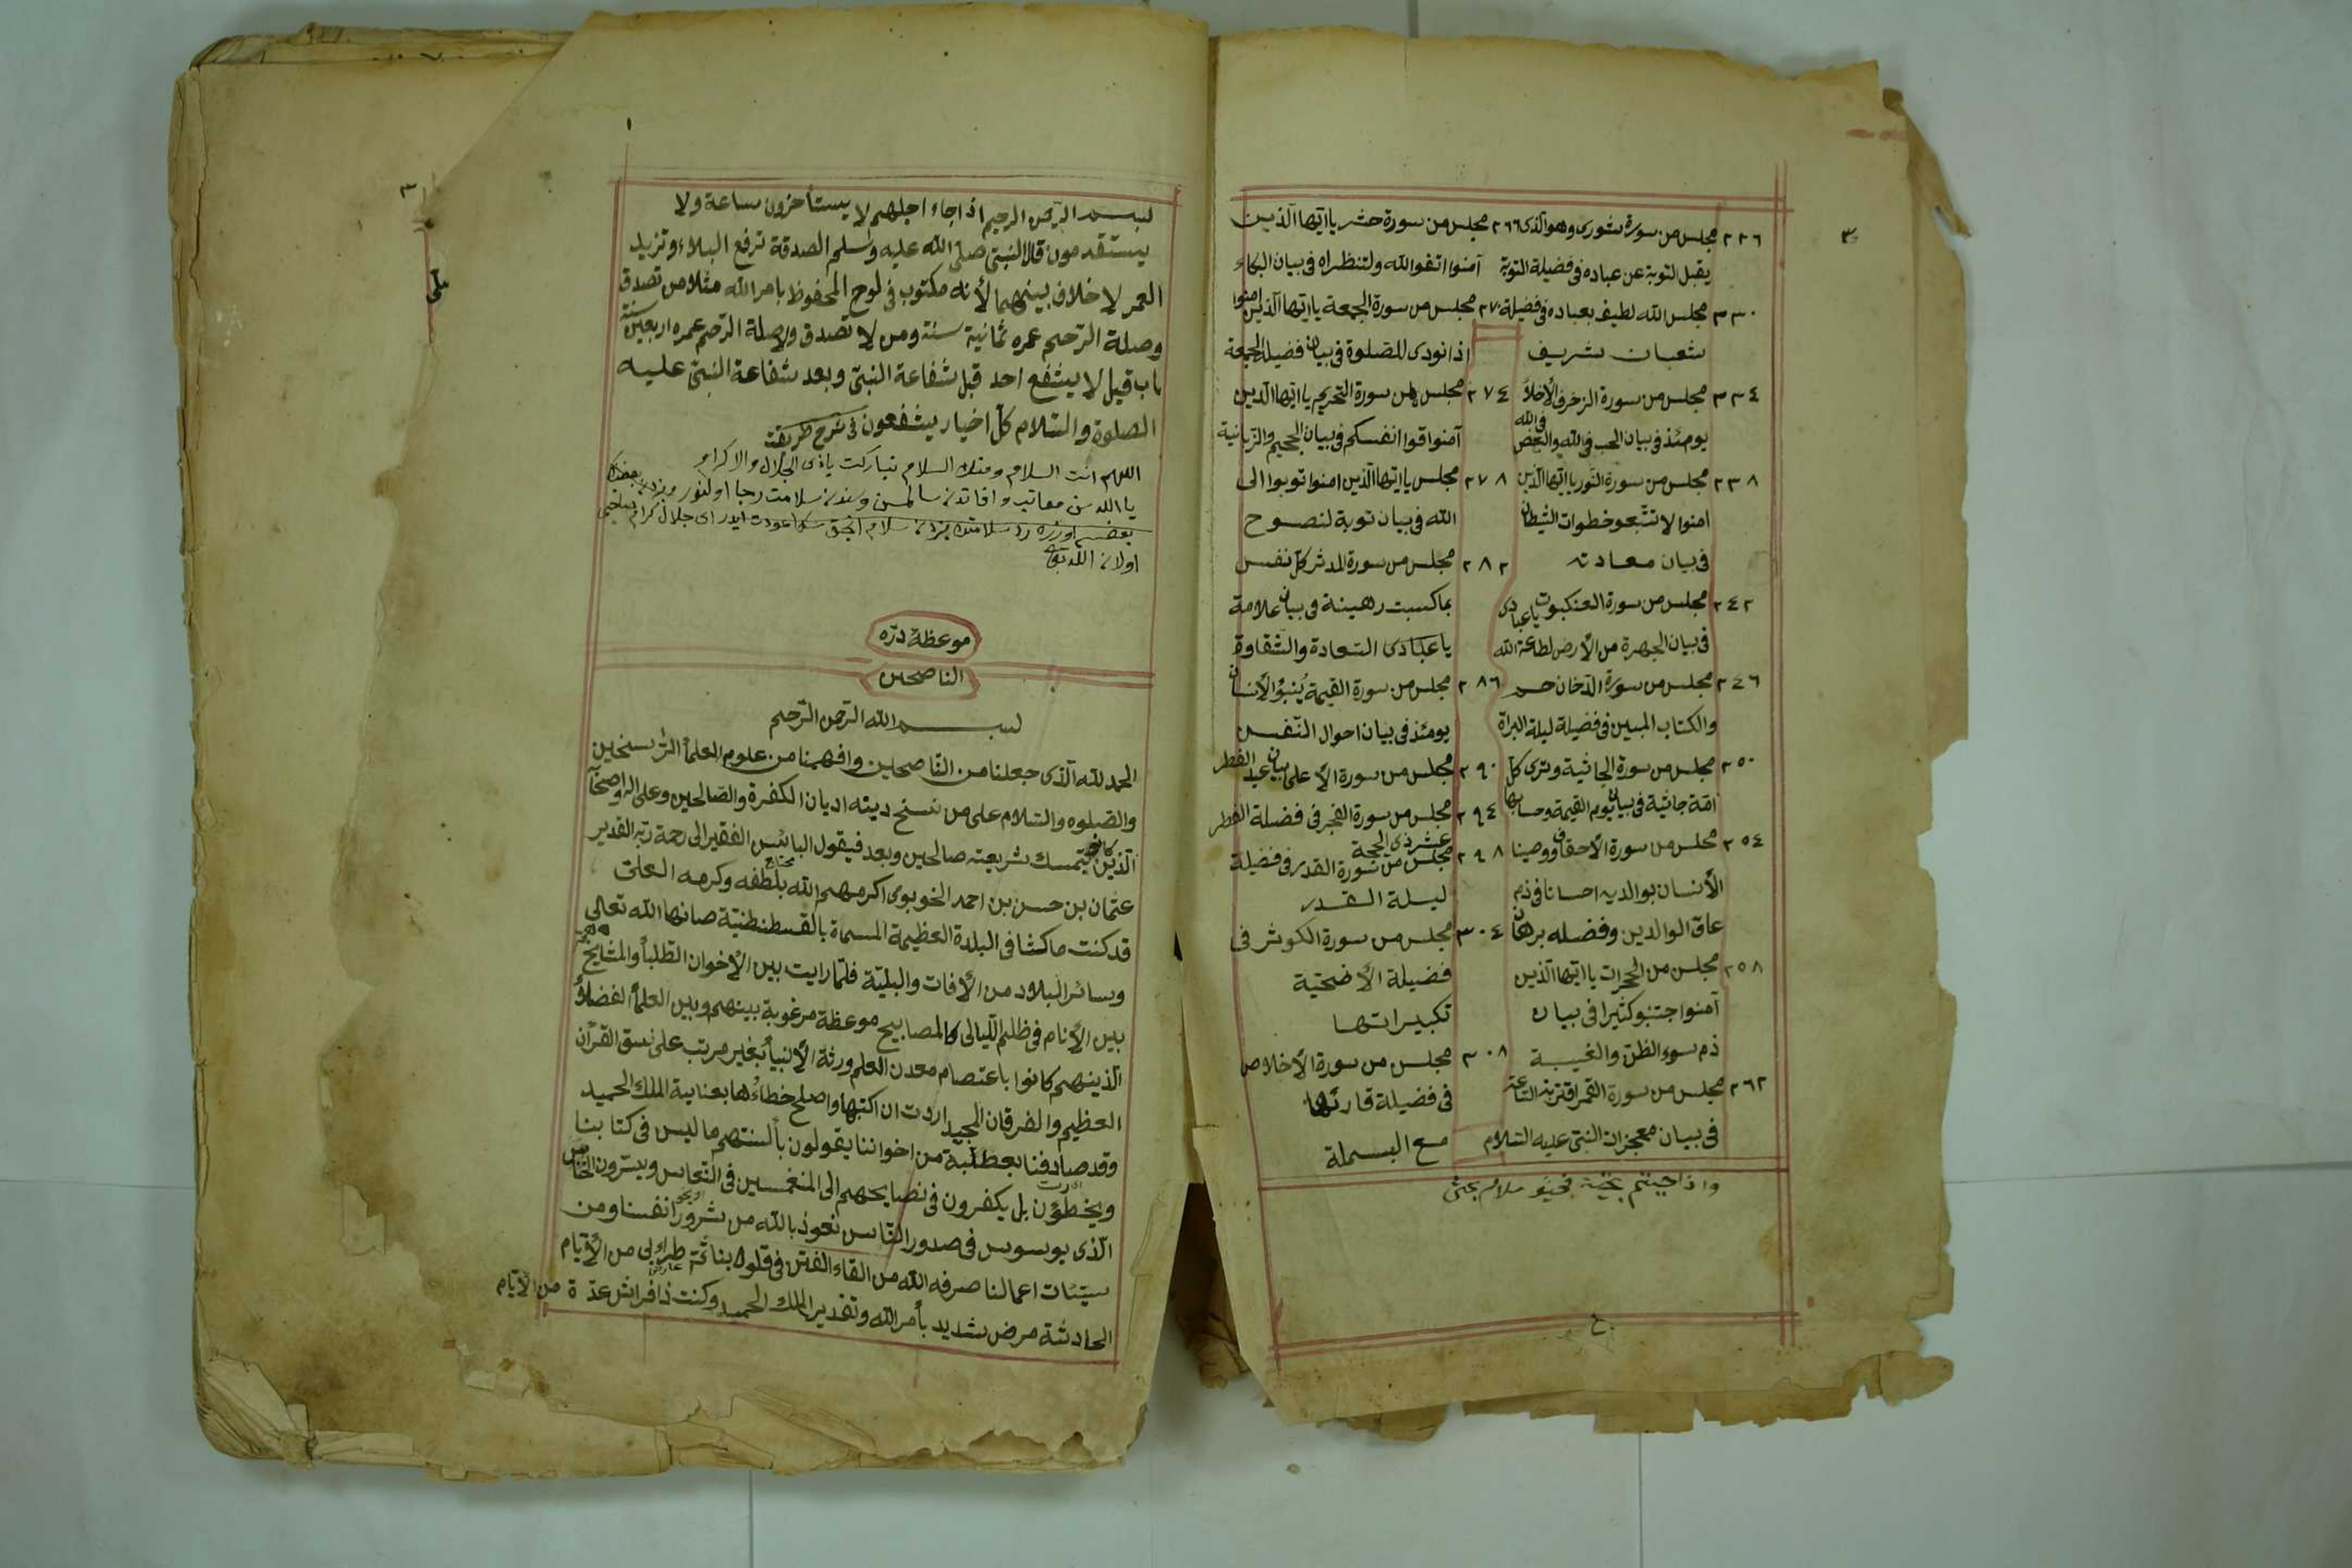 ٣
٢٢٦ مجلس من سورة شورى وهو الذى
يقبل التوبة عن عباده فى فضيلة التوبة
٢٣٠ مجلس الله لطيف بعباده فى فضيلة
شعبان شريف
٢٣٤ مجلس من سورة الزخرف الأخلاّ
يومئذ فى بيان الحب فى الله والبغض فى الله
٢٣٨ مجلس من سورة النور يا ايّها الّذين
امنوا لا تتّبعو خطوات الشيطان
فى بيان معادته
٢٤٢ مجلس من سورة العنكبوت يا عبادى
فى بيان الجهرة من الأرض لطاعة الله
٢٤٦ مجلس من سورة الدّخان حم
والكتاب المبين فى فضيلة ليلة البراة
٢٥٠ مجلس من سورة الجاثية وترى كلّ
امّة جاثية فى بيان يوم القيمة وحسابها
٢٥٤ مجلس من سورة الأحقاف ووصينا
الأنسان بوالديه احسانا فى ذم
عاق الوالدين وفضله برهان
٢٥٨ مجلس من الحجرات يا ايّها الّذين
آمنوا جتنبو كثيرا فى بيان
ذم سوء الظن والغيبة
٢٦٢ مجلس من سورة القمر اقتربت السّاعة
فى بيان معجزات النبى عليه السّلام
٢٦٦ مجلس من سورة حشر يا ايّها الّذين
آمنوا اتقوا الله ولتنظر اه فى بيان البكاء
٢٧٠ مجلس من سورة الجمعة يا ايّها الّذين امنوا
اذا نودى للصّلوة فى بيان فضيلة الجمعة
٢٧٤ مجلس من سورة التحريم يا ايّها الّذين
آمنوا قوا انفسكم فى بيان الجحيم والزبانية
٢٧٨ مجلس يا ايّها الّذين امنوا توبوا الى
الله فى بيان توبة لنصوح
٢٨٢ مجلس من سورة المدثر كلّ نفس
بما كسبت رهينة فى بيان علامة
يا عبادى السّعادة والشّقاوة
٢٨٦ مجلس من سورة القيمة يُنبؤ الأنسان
يومئذ فى بيان احوال النّفس
٢٩٠ مجلس من سورة الأعلى بيان عيد الفطر
٢٩٤ مجلس من سورة الفجر فى فضيلة الفطر
عشر ذى الحجة
٢٩٨ مجلس من سورة القدر فى فضيلة
ليلة القدر
٣٠٤ مجلس من سورة الكوثر فى
فضيلة الأضحيّة
تكبيراتها
٣٠٨ مجلس من سورة الأخلاص
فى فضيلة قارئها
مع البسملة
١
بسم الرحمن الرحيم اذا جاء اجلهم لا يستأخرون ساعة ولا
يستقدمون قال النبى صلى الله عليه وسلم الصدقة ترفع البلاء وتزيد
العمر لا خلاف بينهما لأنه مكتوب فى لوح المحفوظ بامر الله مثلا من تصدق
وصلة الرّحم عمره ثمانية سنة ومن لا تصدق ولا صلة الرّحم عمره اربعين سنة
باب قيل لا يشفع احد قبل شفاعة النبىّ وبعد شفاعة النبىّ عليه
الصلوة والسّلام كلّ اخيار يشفعون فى شرح طريقت
اللهم انت السلام ومنك السلام تباركت ياذى الجلال والاكرام
موعظة درّة
الناصحين
بسم الله الرّحمن الرّحيم
الحمد لله الّذى جعلنا من النّاصحين وافهمنا من علوم العلمأ الرّاسخين
والصّلوه والسّلام على من نسخ دينه اديان الكفرة والصّالحين وعلى اله واصحآ
الّذين كانو يتمسك بشريعته صالحين وبعد فيقول البائس الفقير الى رحمة ربّه القدير
عثمان بن حسن بن احمد الخوبوى اكرمهم الله بلطفه وكرمه العلىّ
قد كنت ماكثا فى البلدة العظيمة المسماة بالقسطنطنيّة صانها الله تعالى
وسائر البلاد من الأفات والبليّة فلمّا رايت بين الأخوان الطّلبأ والمشايخ
بين الأنام فى ظلم اللّيالى كالمصابيح موعظة مرغوبة بينهم وبين العلمأ الفضلأ
الّذينهم كانوا باعتصام معدن العلم ورثة الأنبيأ بغير مرتب على نسق القرأن
العظيم والفرقان المجيد اردت ان اكتبها واصلح خطاءها بعناية الملك الحميد
وقد صادفنا بعطلبة من اخواننا يقولون بألسنتهم ما ليس فى كتابنا
ويخطئون بل يكفرون فى نصايحهم الى المنغمسين فى النّحاس ويسّرون الخنّاس
الّذى يوسوس فى صدور النّاس نعوذ بالله من شرور انفسنا ومن
سيّئات اعمالنا صرفه الله من القاء الفتن فى قلوبنا ثمّ طراولى من الأيّام
الحادثة مرض شديد بأمر الله وتقدير الملك الحميد وكنت ذا فراش عدّة من الأيّام